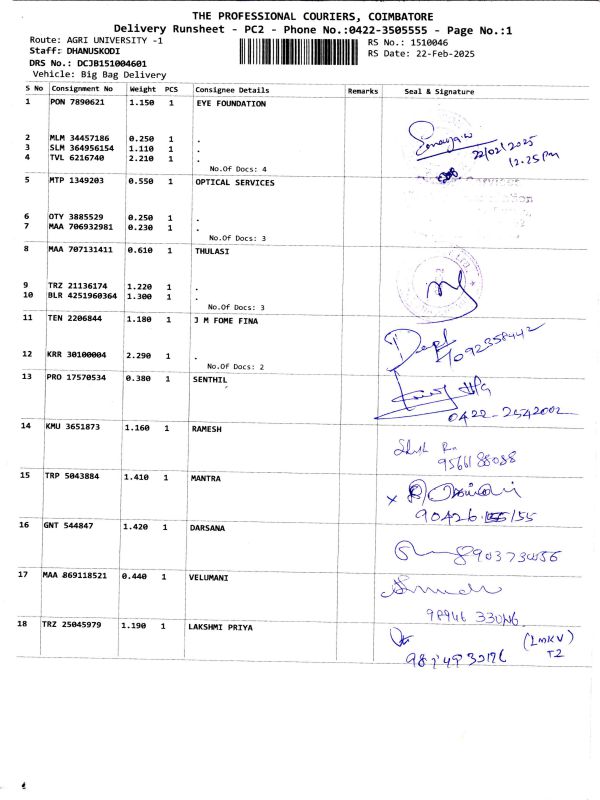 THE PROFESSIONAL COURIERS, COIMBATORE
Delivery Runsheet - PC2 - Phone No.:0422-3505555 - Page No.:1
Route: AGRI UNIVERSITY -1 RS No.: 1510046
Staff: DHANUSKODI RS Date: 22-Feb-2025
DRS No.: DCJB151004601
Vehicle: Big Bag Delivery
S No Consignment No Weight PCS Consignee Details Remarks Seal & Signature
1 PON 7890621 1.150 1 EYE FOUNDATION
2 MLM 34457186 0.250 1 .
22/02/2025
3 SLM 364956154 1.110 1 .
12.25pm
4 TVL 6216740 2.210 1 .
No.Of Docs: 4
5 MTP 1349203 0.550 1 OPTICAL SERVICES
6 OTY 3885529 0.250 1 .
7 MAA 706932981 0.230 1 .
No.Of Docs: 3
8 MAA 707131411 0.610 1 THULASI
9 TRZ 21136174 1.220 1 .
10 BLR 4251960364 1.300 1 .
No.Of Docs: 3
11 TEN 2206844 1.180 1 J M FOME FINA
12 KRR 30100004 2.290 1 .
No.Of Docs: 2
13 PRO 17570534 0.380 1 SENTHIL
0422-2542002
14 KMU 3651873 1.160 1 RAMESH
9566188088
15 TRP 5043884 1.410 1 MANTRA
16 GNT 544847 1.420 1 DARSANA
17 MAA 869118521 0.440 1 VELUMANI
18 TRZ 25045979 1.190 1 LAKSHMI PRIYA